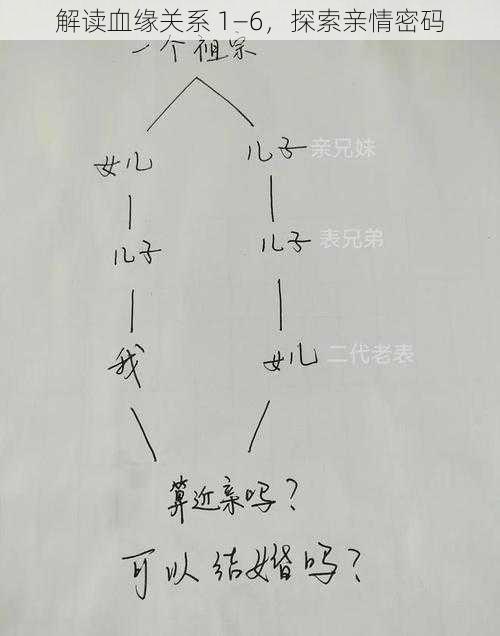 解读血缘关系 1–6，探索亲情密码
一个祖宗
女儿 儿子 亲兄妹
儿子 儿子 表兄弟
我 女儿 二代老表
算近亲吗？
可以结婚吗？